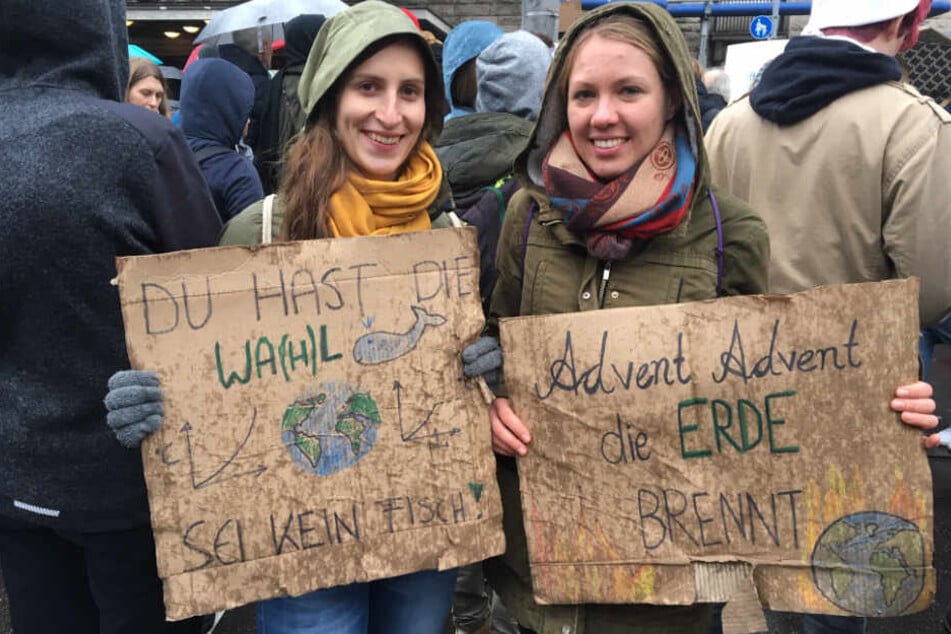 DU HAST DIE
WA(H)L
°C
SEI KEIN FISCH!
Advent Advent
die ERDE
BRENNT